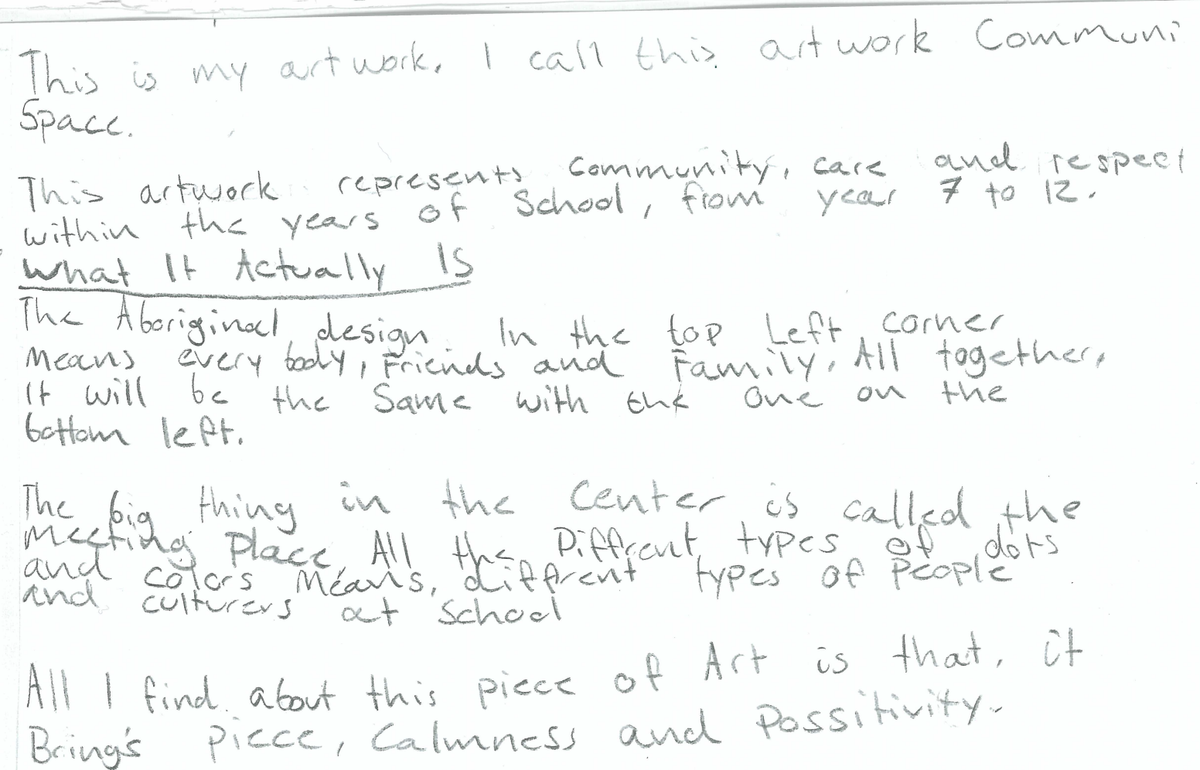 This is my artwork. I call this artwork Communi
Space.
This artwork represents Community, care and respect
within the years of School, from year 7 to 12.
What It Actually Is
The Aboriginal design In the top Left corner
Means every body, Friends and Family, All together,
It will be the Same with the One on the
bottom left.
The big thing in the Center is called the
Meeting Place, All the Diffrent types of dots
and colors Means, diffrent types of People
and culturers at School
All I find about this piece of Art is that, it
Bring's piece, Calmness and Possitivity.